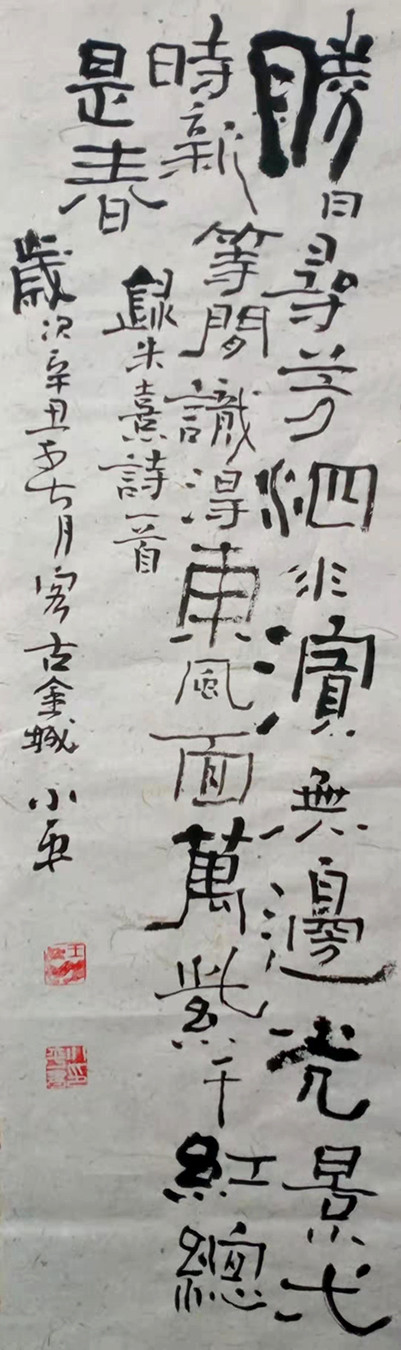 勝日尋芳泗水濱無邊光景弌
時新等間識得東風面萬紫千紅總
是春
錄朱熹詩一首
歲次辛丑年七月客古金城小平